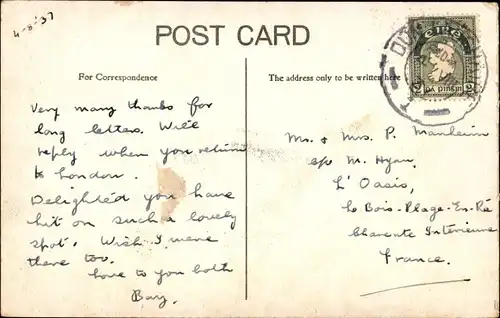 4-8-37
POST CARD
For Correspondence
The address only to be written here
EIRE
2 DA PINGIN 2
Very many thanks for
long letter. Will
reply when you return
to London.
Delighted you have
hit on such a lovely
spot. Wish I were
there too.
Love to you both
Bay.
Mr. & Mrs. P. Manheim
c/o M. Hyan,
L'Oasis,
Le Bois-Plage-En-Ré
Charente Inférieure
France.